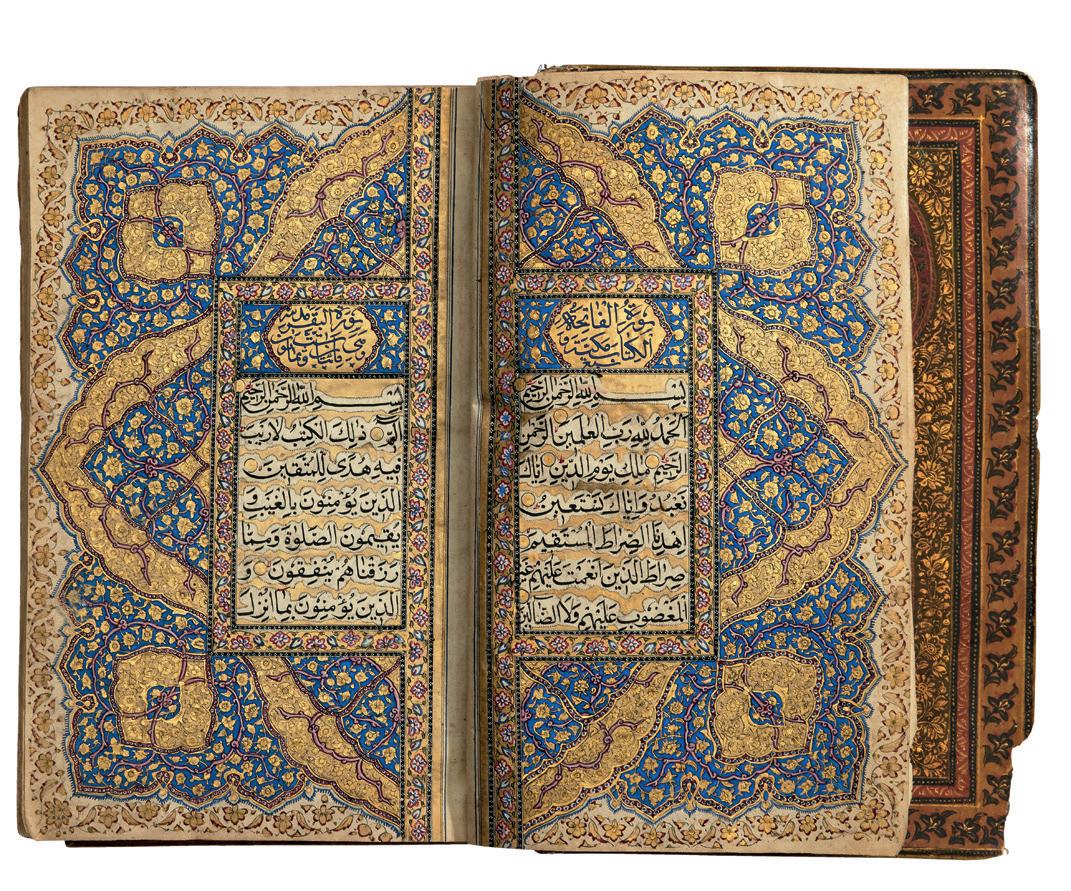 سورة الفاتحة
الكتاب مكية
بِسْمِ اللّٰهِ الرَّحْمٰنِ الرَّحِيمِ
اَلْحَمْدُ لِلّٰهِ رَبِّ الْعٰلَمِينَ الرَّحْمٰنِ
الرَّحِيمِ مٰلِكِ يَوْمِ الدِّينِ اِيَّاكَ
نَعْبُدُ وَاِيَّاكَ نَسْتَعِينُ
اِهْدِنَا الصِّرَاطَ الْمُسْتَقِيمَ
صِرَاطَ الَّذِينَ اَنْعَمْتَ عَلَيْهِمْ غَيْرِ
الْمَغْضُوبِ عَلَيْهِمْ وَلَا الضَّالِّينَ
سورة البقرة مدنية
بِسْمِ اللّٰهِ الرَّحْمٰنِ الرَّحِيمِ
الٓمٓ ذٰلِكَ الْكِتٰبُ لَا رَيْبَ
فِيهِ هُدًى لِلْمُتَّقِينَ
الَّذِينَ يُؤْمِنُونَ بِالْغَيْبِ وَ
يُقِيمُونَ الصَّلٰوةَ وَمِمَّا
رَزَقْنَاهُمْ يُنْفِقُونَ وَ
الَّذِينَ يُؤْمِنُونَ بِمَا اُنْزِلَ